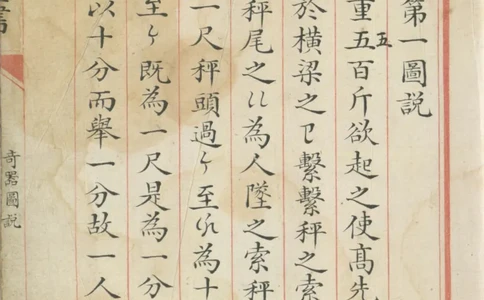 第一圖説
重五百斤欲起之使髙先
五
於横梁之㔾繫繫秤之索
秤尾之〢為人墜之索秤
一尺秤頭過ケ至㐆為十
至ケ既為一尺是為一分
以十分而舉一分故一人
奇器圖説